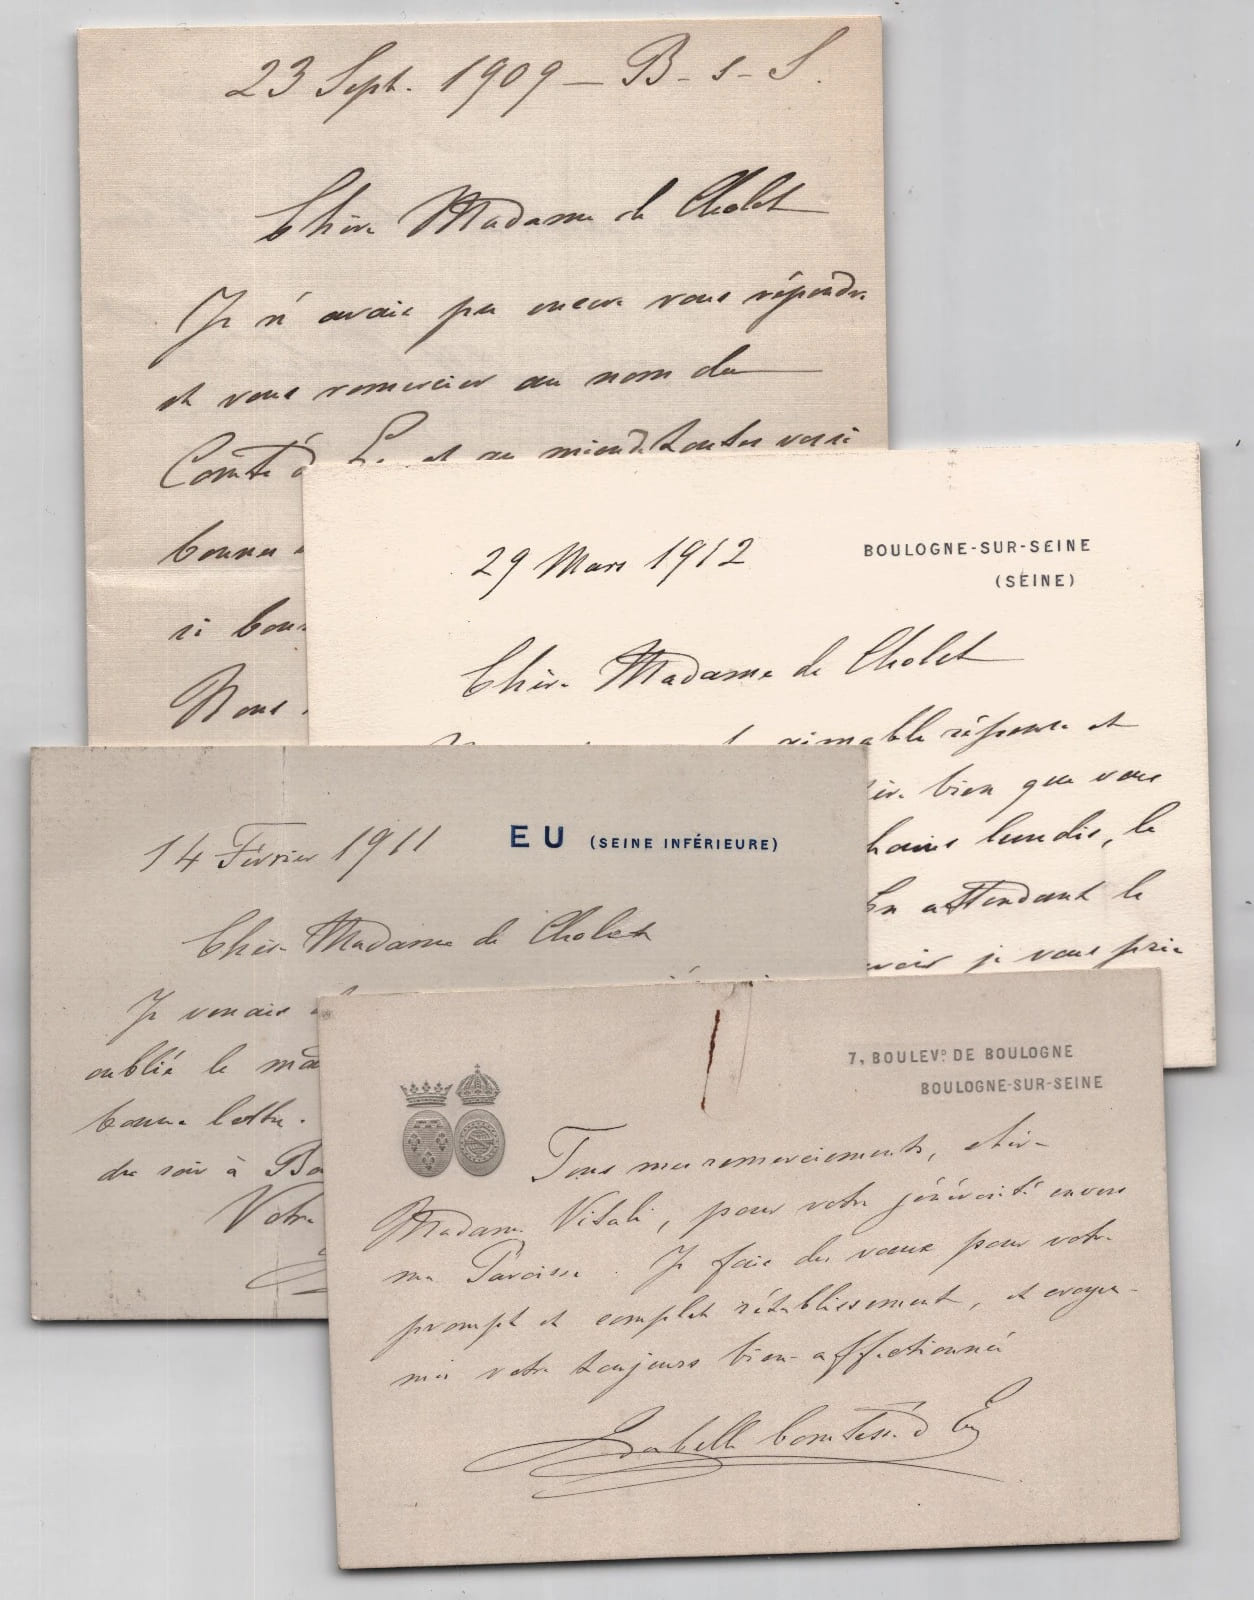 23 Sept. 1909 - B-s-S.
Chère Madame de Cholet
Je n'avais pu encore vous répondre
et vous remercier au nom du
Comte d'Eu et au mien de toutes vos si
bonnes
si bon
Nous
29 Mars 1912
BOULOGNE-SUR-SEINE
(SEINE)
Chère Madame de Cholet
aimable réponse et
bien que vous
lundis, le
En attendant le
je vous prie
14 Février 1911
EU (SEINE INFÉRIEURE)
Chère Madame de Cholet
Je venais
oublié le
bonne lettre.
du soir à Bo
Votre
7, BOULEVD DE BOULOGNE
BOULOGNE-SUR-SEINE
Tous mes remerciements, chère
Madame Vitali, pour votre générosité envers
ma Paroisse. Je fais des vœux pour votre
prompt et complet rétablissement, et croyez-
moi votre toujours bien affectionnée
Isabelle Comtesse d'Eu